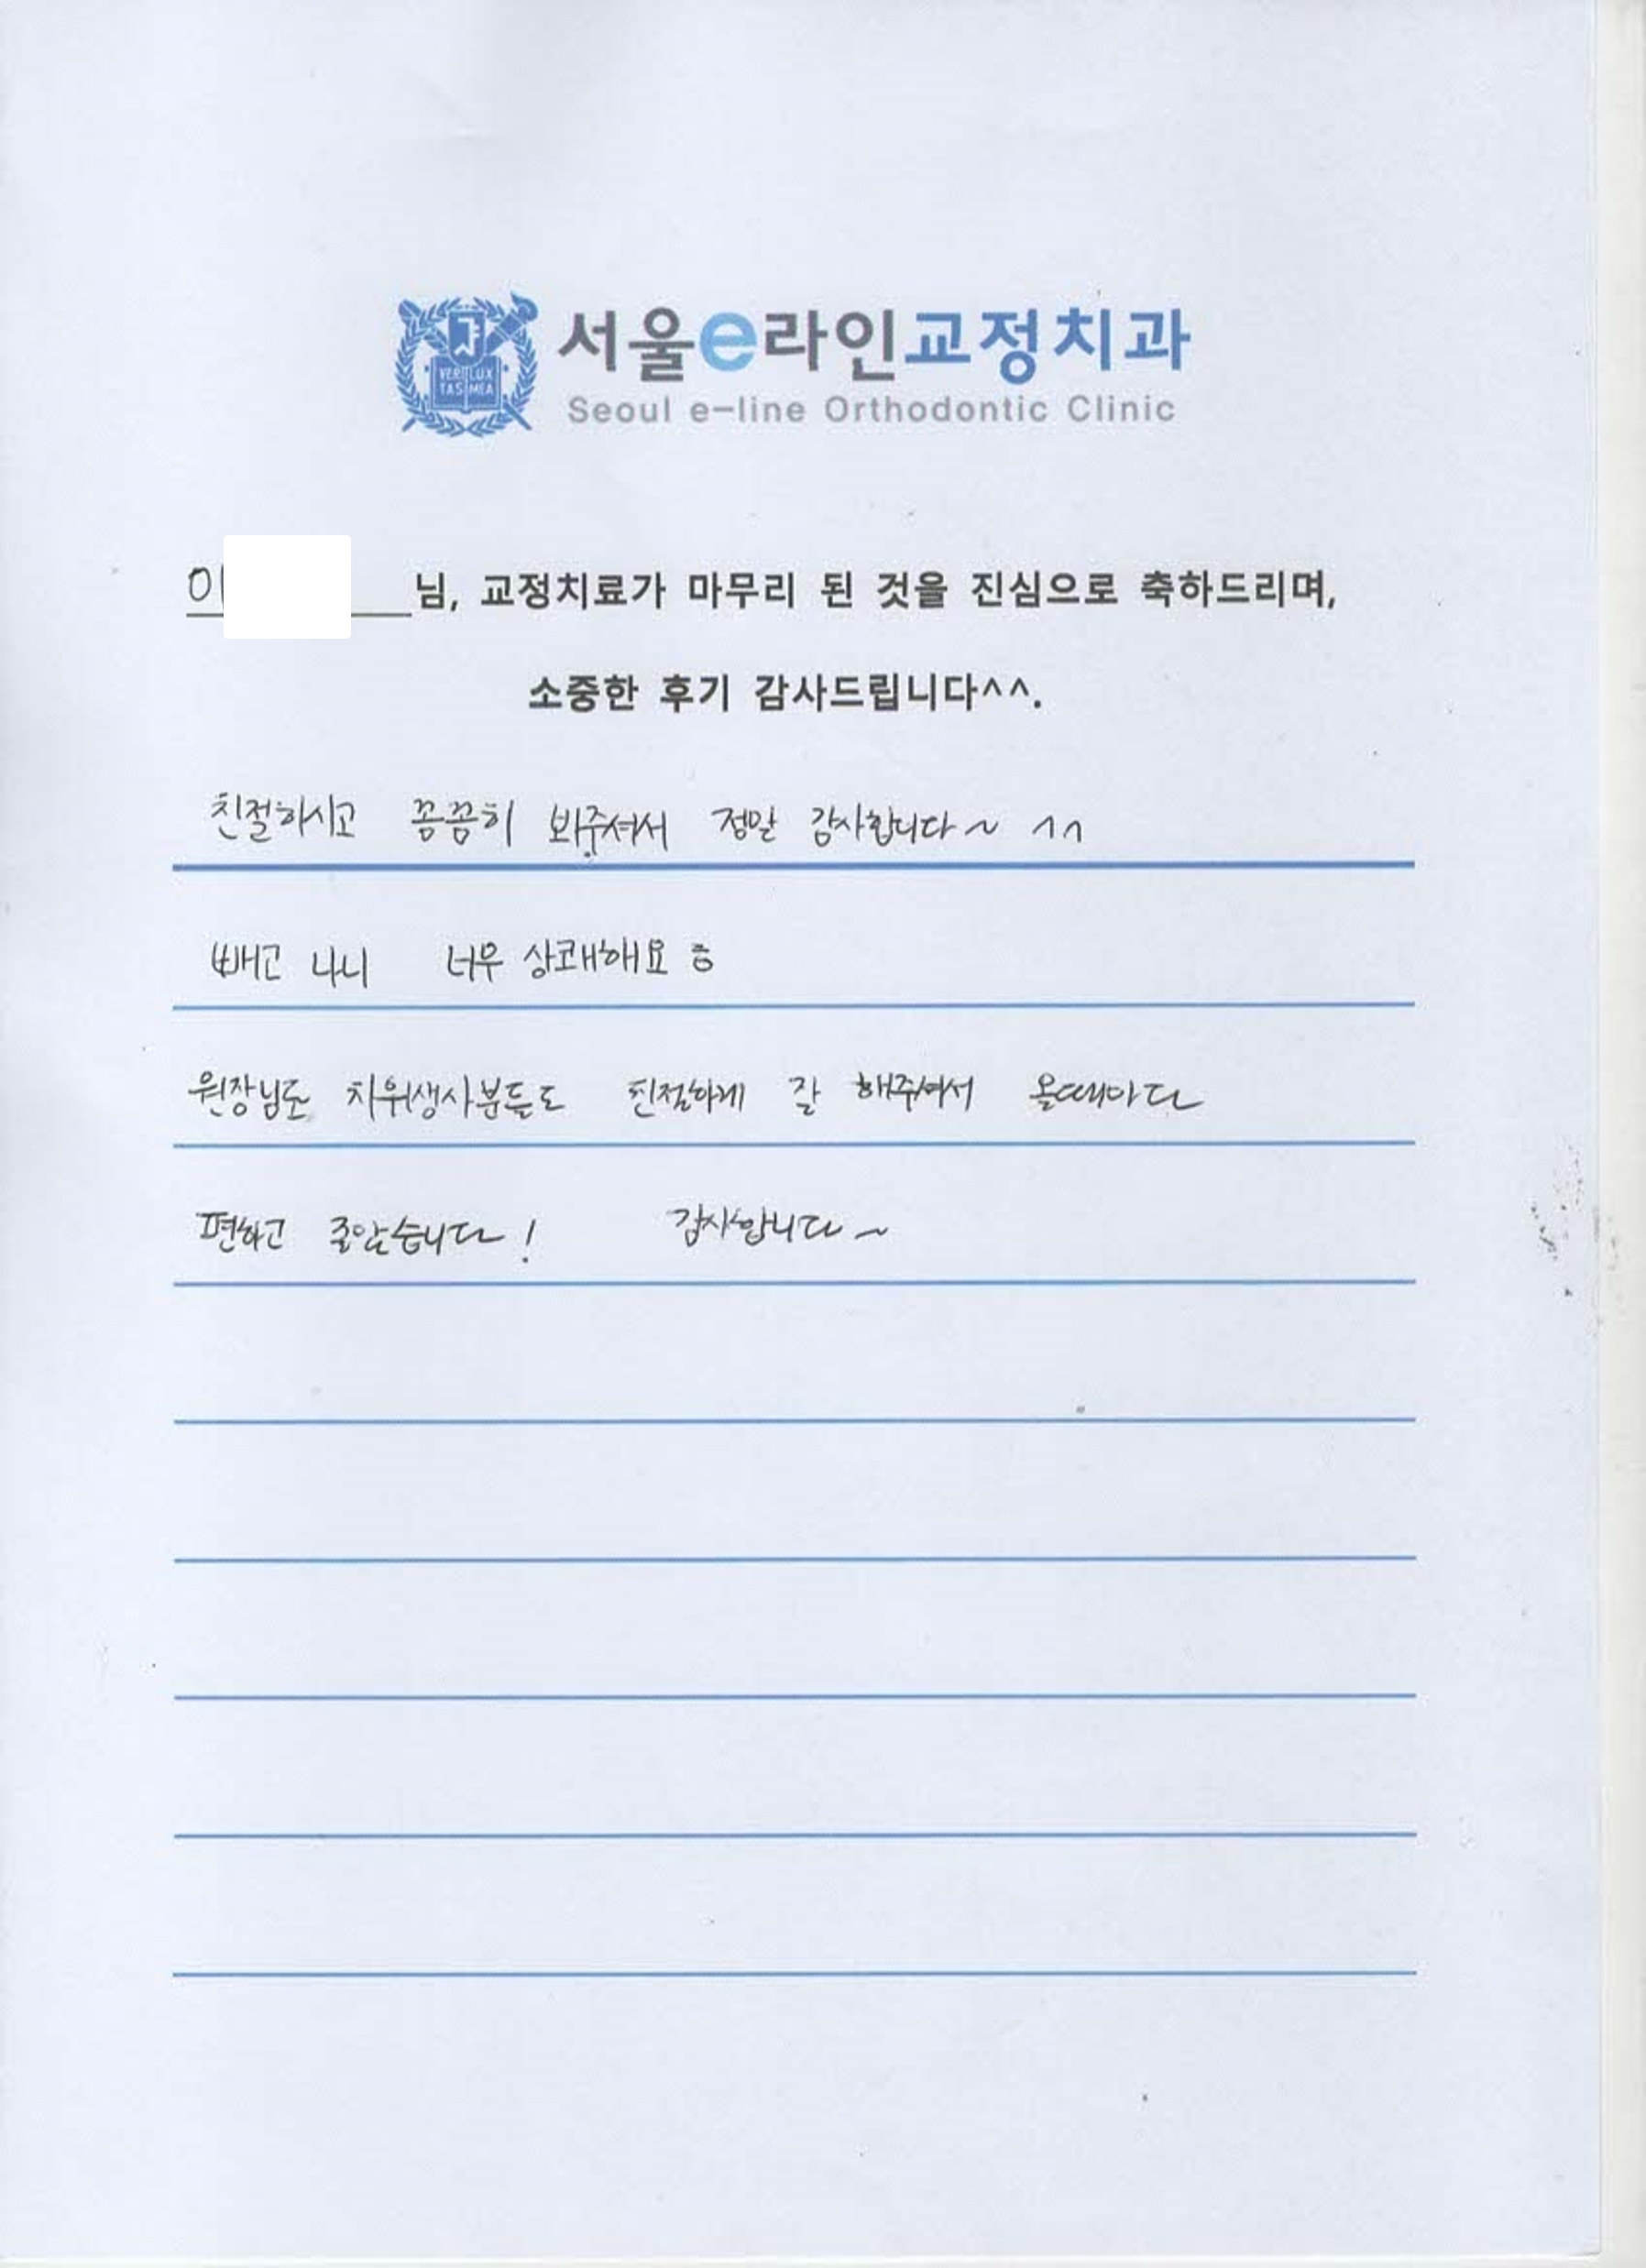 VERI LUX
TAS MEA
서울e라인교정치과
Seoul e-line Orthodontic Clinic
이 님, 교정치료가 마무리 된 것을 진심으로 축하드리며,
소중한 후기 감사드립니다^^.
친절하시고 꼼꼼히 봐주셔서 정말 감사합니다~ ^^
빼고 나니 너무 상쾌해요 ㅎ
원장님도 치위생사분들도 친절하게 잘 해주셔서 올때마다
편하고 좋았습니다! 감사합니다~